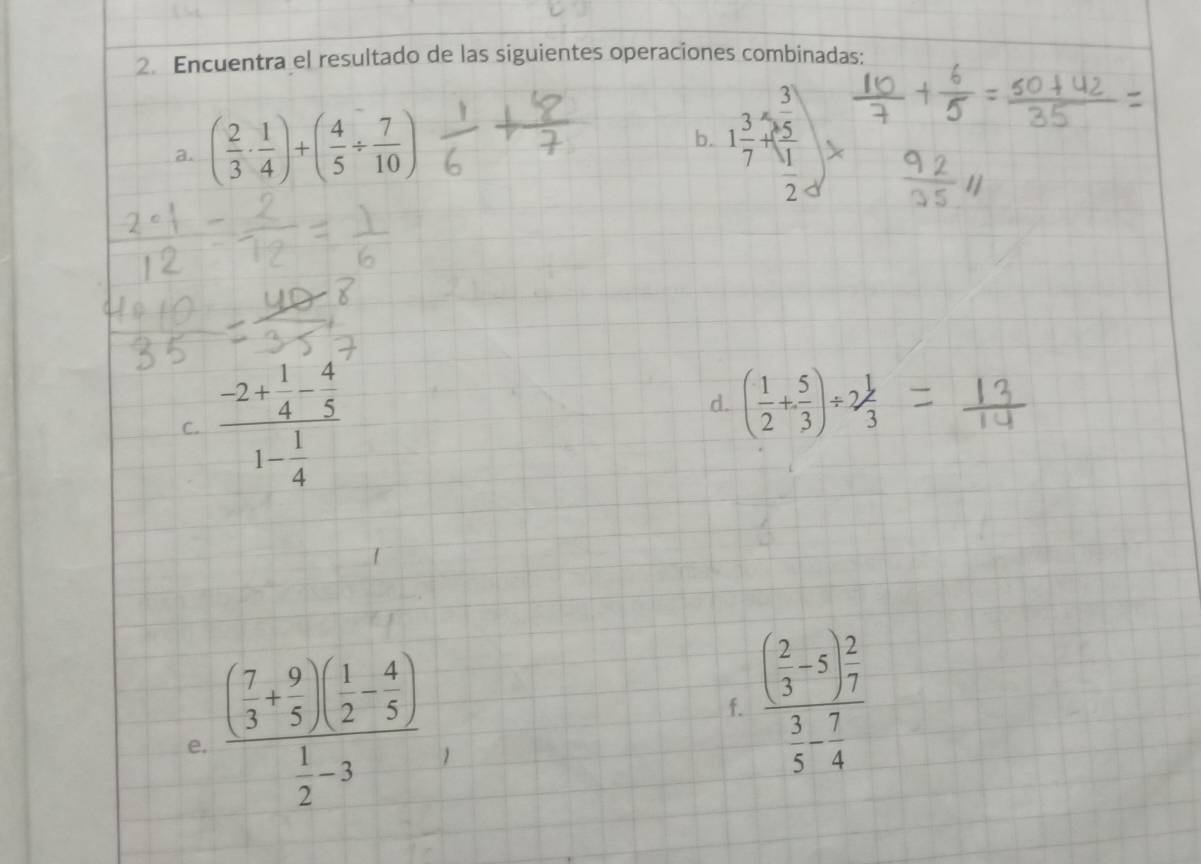 2. Encuentra el resultado de las siguientes operaciones combinadas:
a. (2/3 · 1/4) + (4/5 ÷ 7/10) 1/6 + 8/7
b. 1 3/7 + (3/5)/(1/2) 10/7 + 6/5 = 50+42/35 =
92/35 //
2·1/12 = 2/12 = 1/6
4·10/35 = 40/35 8/7
c. (-2 + 1/4 - 4/5)/(1 - 1/4)
d. (1/2 + 5/3) ÷ 2 1/3 = 13/14
e. ((7/3 + 9/5)(1/2 - 4/5))/(1/2 - 3)
f. ((2/3 - 5) 2/7)/(3/5 - 7/4)